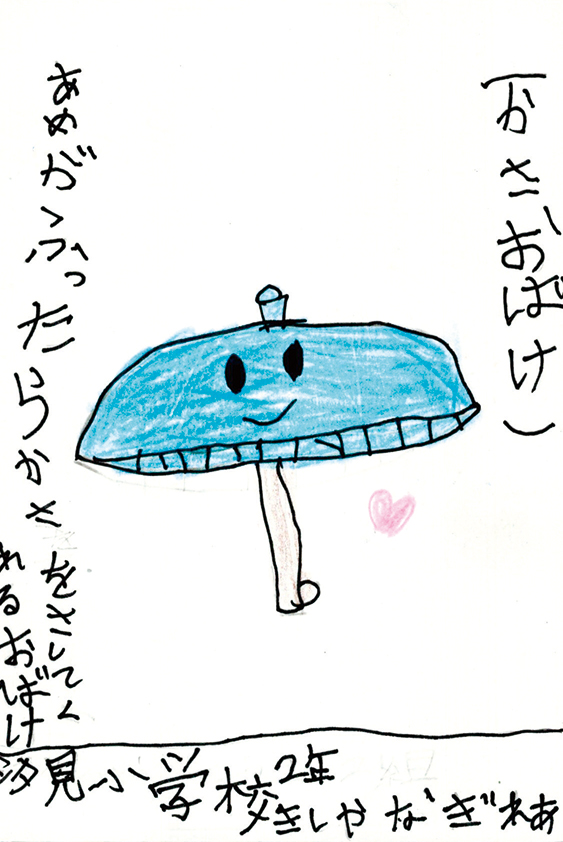 (かさおばけ)
あめがふったらかさをさしてく
れるおばけ
汐見小学校2年
きしやなぎれあ